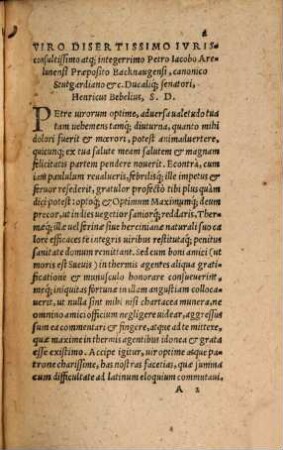 VIRO DISERTISSIMO IVRIS
consultissimo atq; integerrimo Petro Iacobo Ar=
lunensi Præposito Bachnaugensi, canonico
Stutgardiano &c. Ducaliq; senatori,
Henricus Bebelius, S. D.
PEtre uirorum optime, aduersa ualetudo tua
tam uehemens tamq; diuturna, quanto mihi
dolori fuerit & mœrori, potest animaduertere,
quicunq; ex tua salute meam salutem & magnam
felicitatis partem pendere nouerit. Econtrà, cum
iam paulùlum reualueris, febrilisq; ille impetus &
feruor resederit, gratulor profectò tibi plus quàm
dici potest: optoq; & Optimum Maximumq; deum
precor, ut in dies uegetior saniorq; reddaris, Ther=
mæq; illæ ue ferinæ siue hercinianæ naturali suo ca
lore efficaces te integris uiribus restitutāq; penitus
sanitate domum remittant. Sed eum boni amici (ut
moris est Sueuis) in thermis agentes aliqua grati
ficatione & munusculo honorare consueuerint,
meq; iniquitas fortunæ in illam angustiam colloca=
uerit, ut nulla sint mihi nisi chartacea munera, ne
omnino amici officium negligere uidear, aggressus
sum ea commentari & fingere, atque ad te mittere,
quæ maxime in thermis agentibus idonea & grata
esse existimo. Accipe igitur, uir optime atque pa=
trone charissime, has nostras facetias, quæ summa
cum difficultate ad latinum eloquium commutaui.
A 2